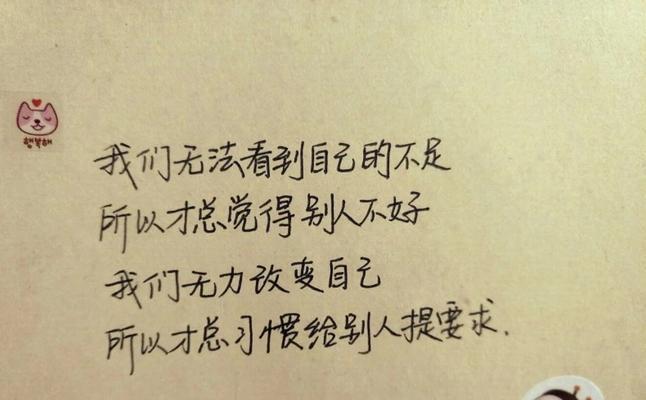 행복해
我们无法看到自己的不足
所以才总觉得别人不好
我们无力改变自己
所以才总习惯给别人提要求.